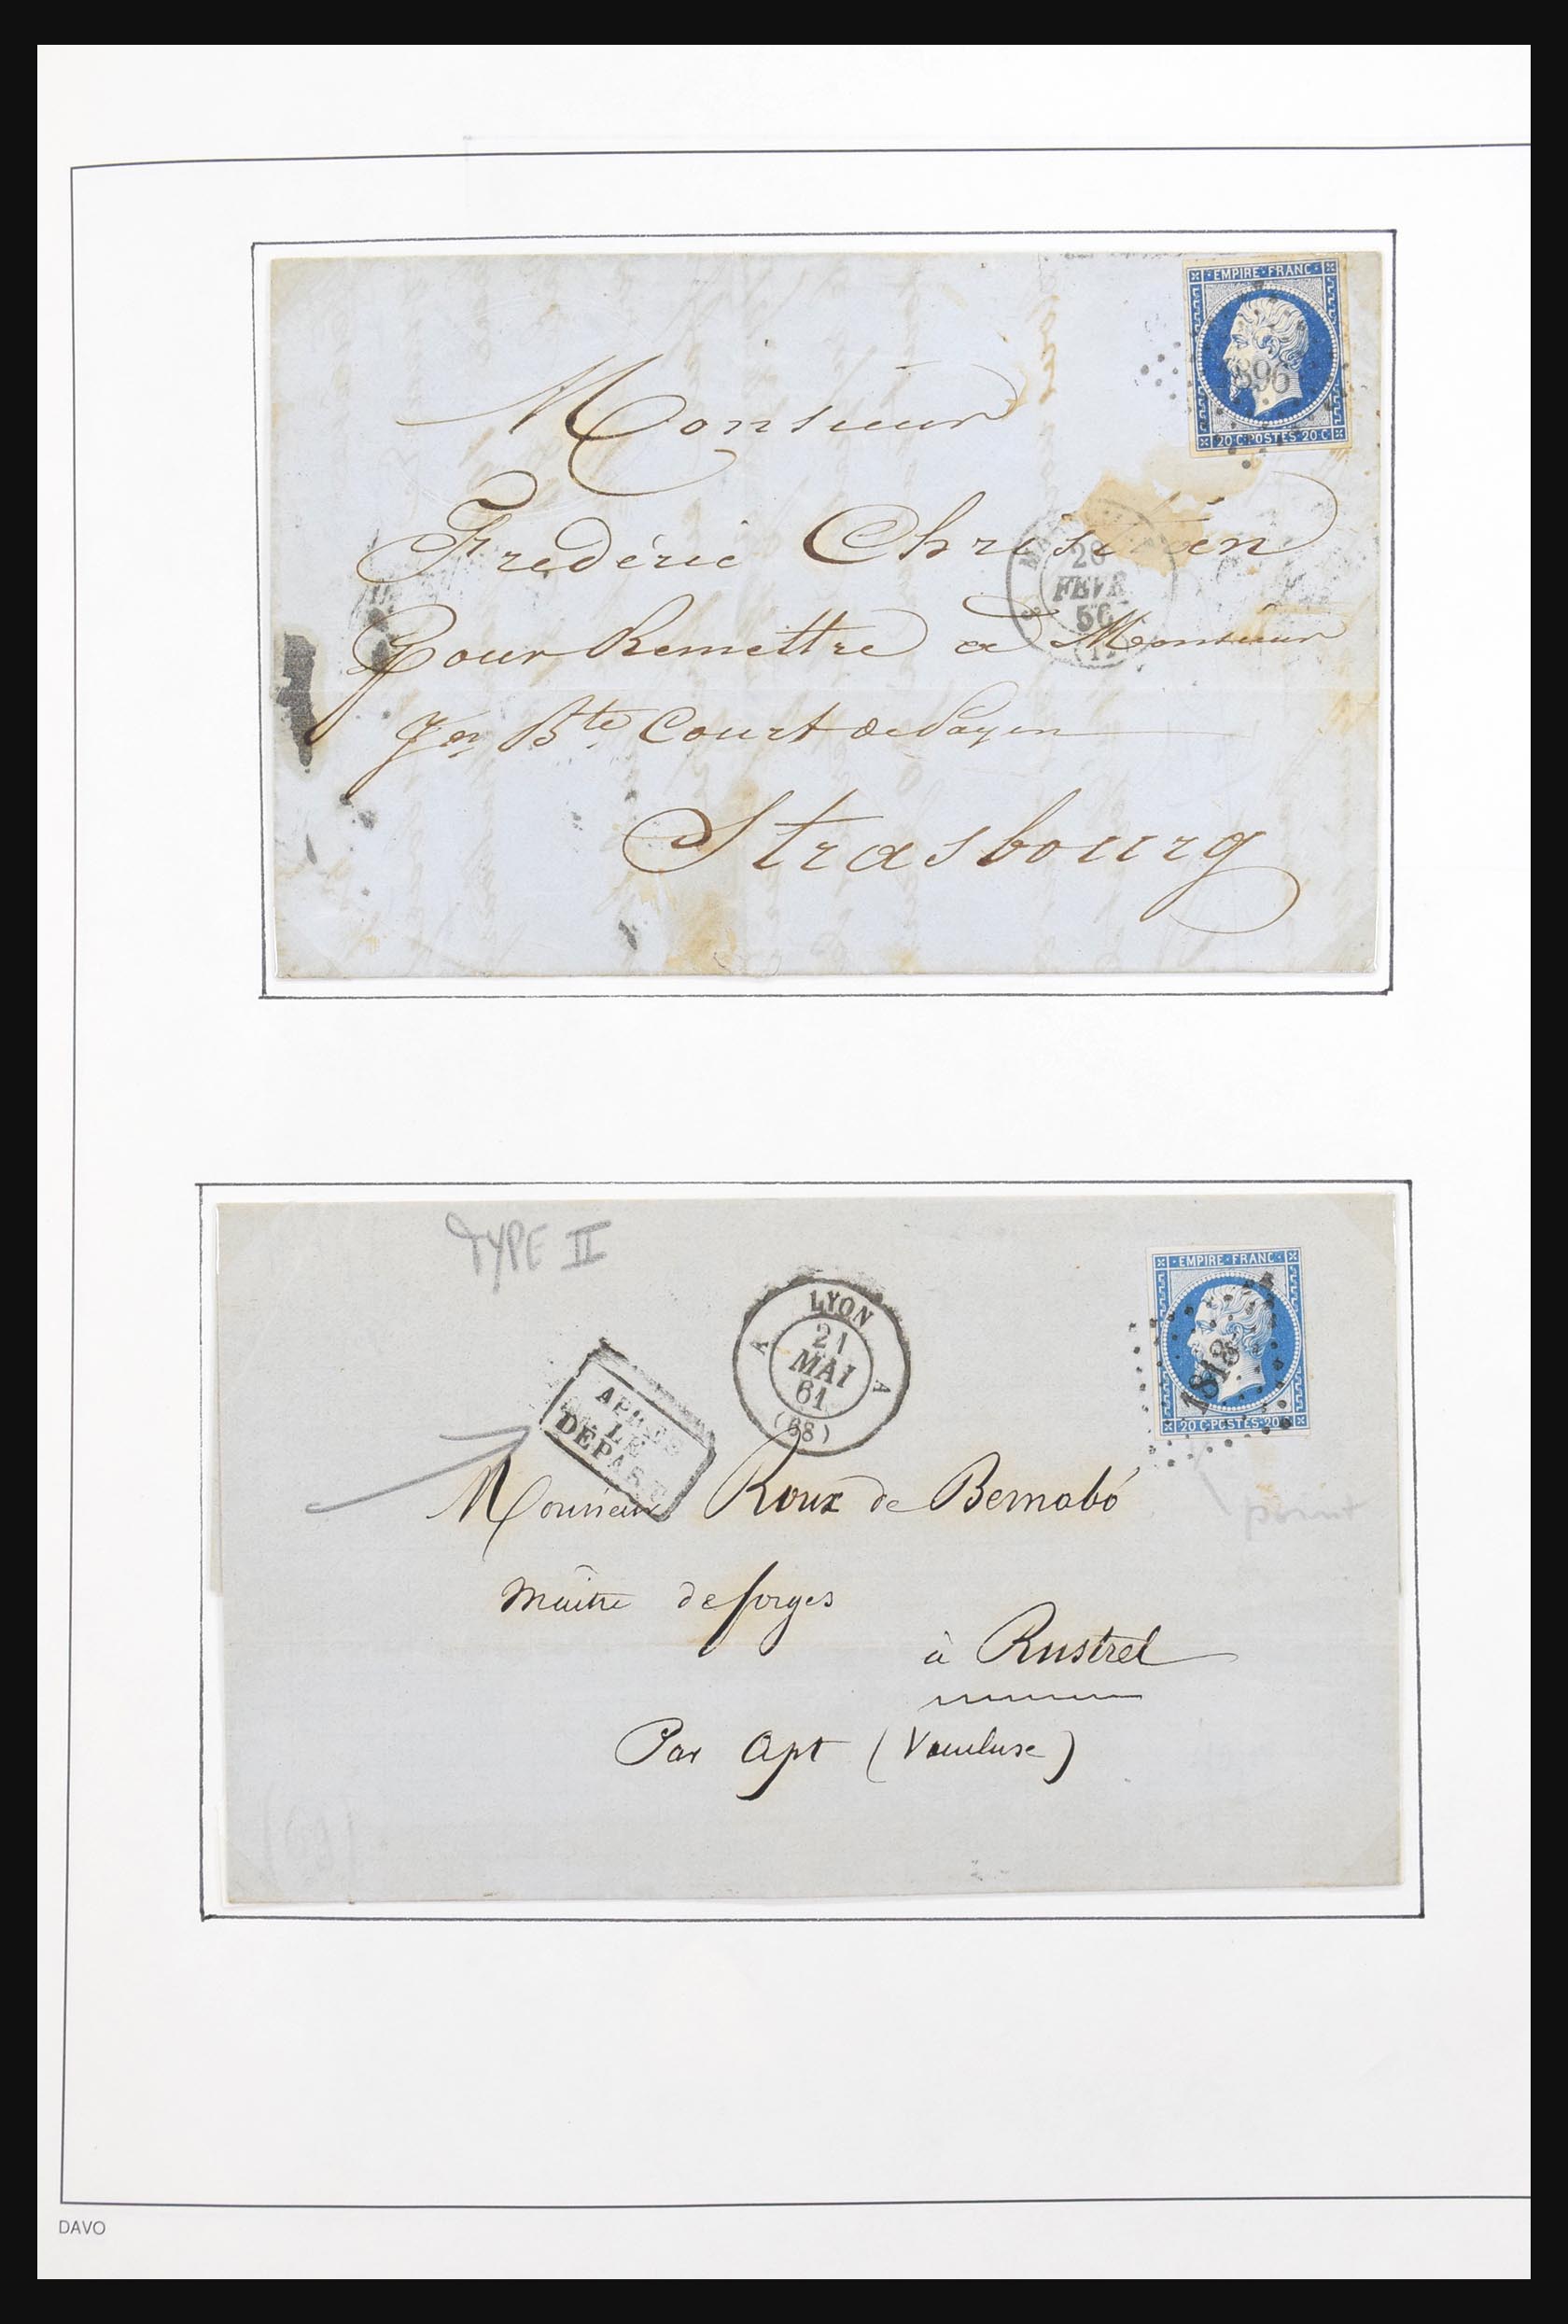 EMPIRE · FRANC ·
1896
20 C · POSTES · 20 C
Monsieur
Fredéric Christién
20
FEVR
56
Pour Remettre a Monsieur
Jn Bte Court de Payen
Strasbourg
TYPE II
EMPIRE · FRANC ·
1818
20 C · POSTES · 20
LYON
21
MAI
61
(68)
A A
APRES
LE
DEPART
Monsieur Roux de Bernabó
point
Maître de forges
à Rustrel
Par Apt (Vaucluse)
DAVO